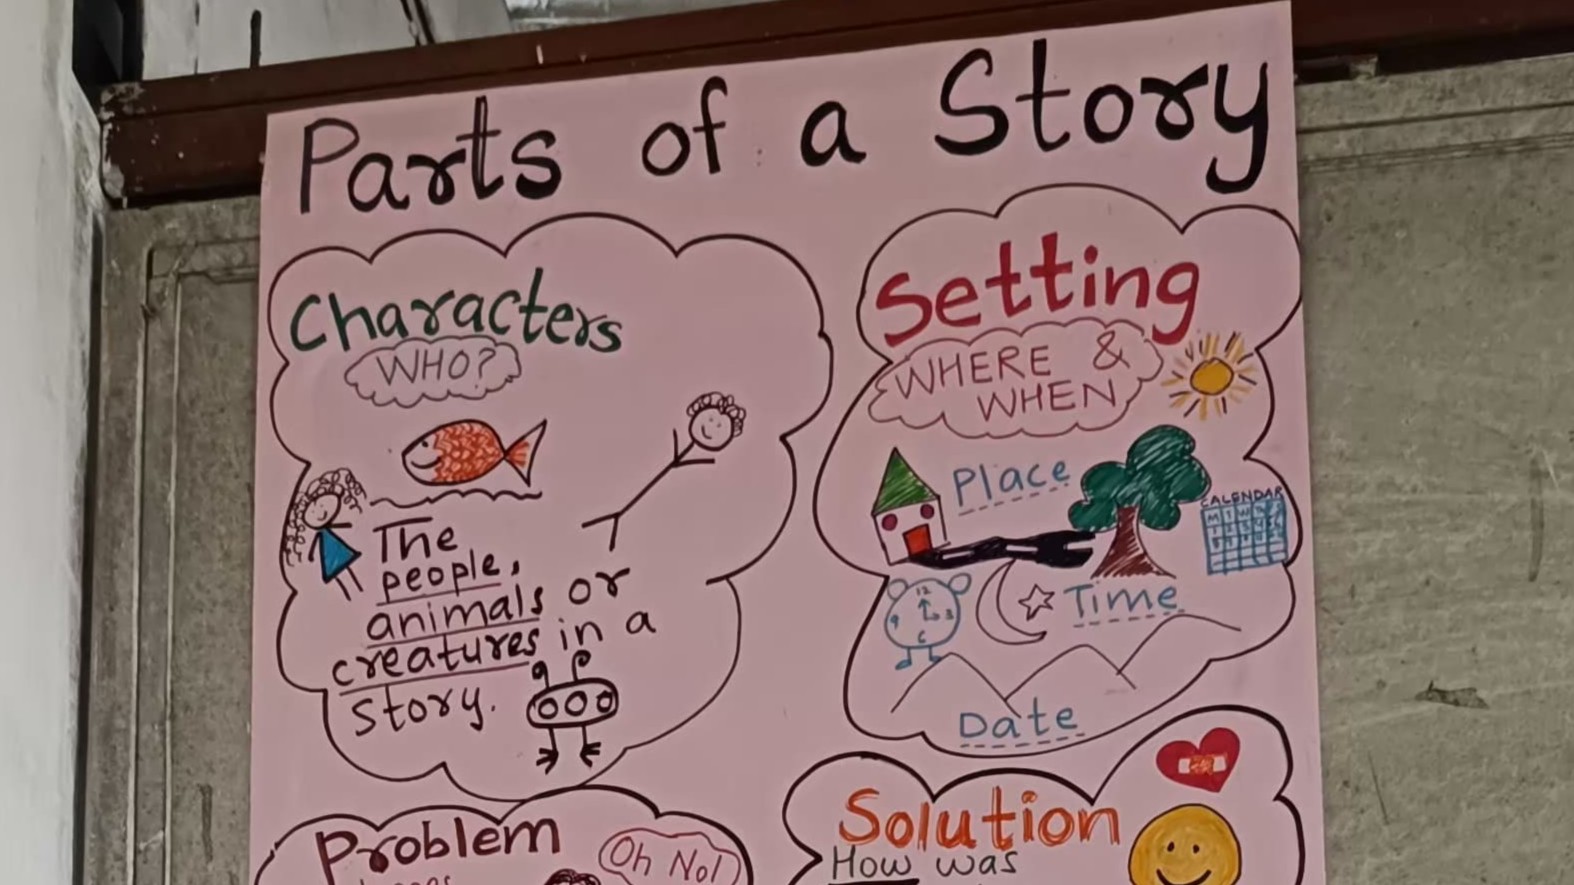 Parts of a Story
Characters
WHO?
The
people,
animals or
creatures in a
story.
Setting
WHERE &
WHEN
Place
CALENDAR
12
9 3
6
Time
Date
Problem
Oh No!
Solution
How was